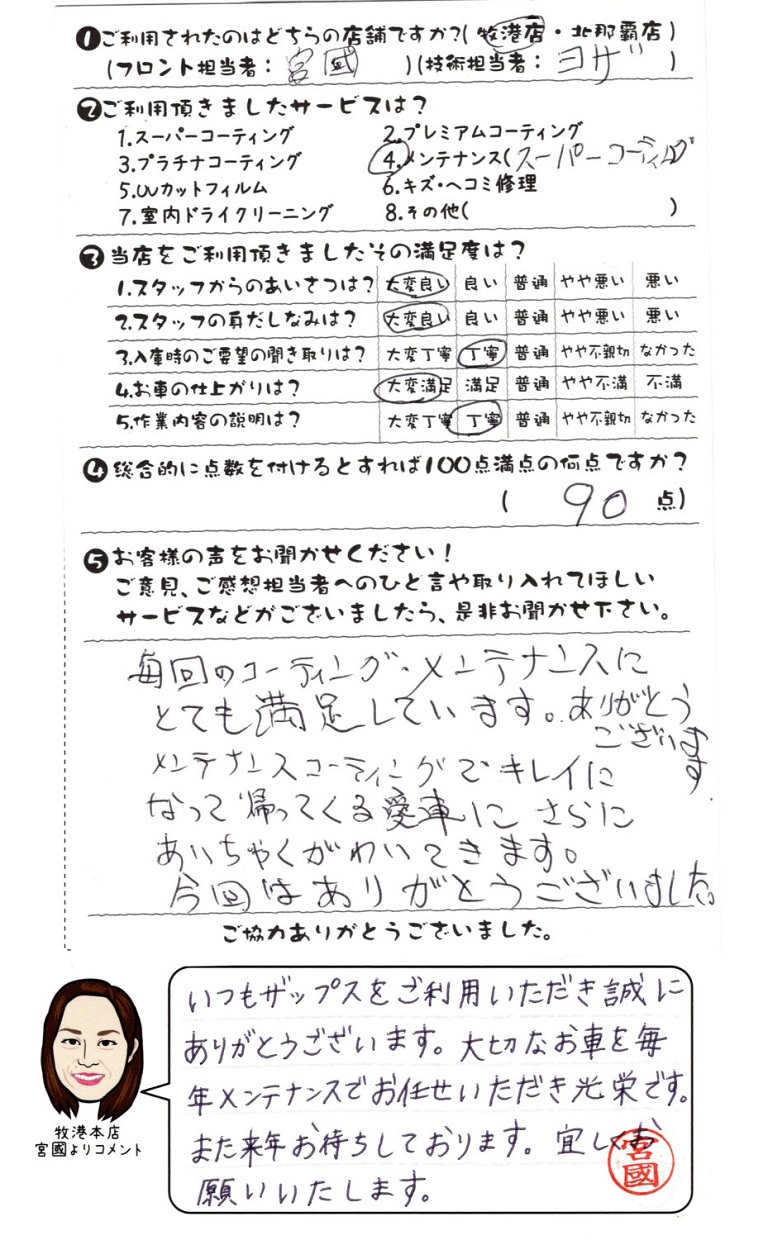 ❶ご利用されたのはどちらの店舗ですか?(牧港店・北那覇店)
(フロント担当者：宮國 )(技術担当者：ヨザ )
❷ご利用頂きましたサービスは?
1.スーパーコーティング 2.プレミアムコーティング
3.プラチナコーティング 4.メンテナンス(スーパーコーティング
5.UVカットフィルム 6.キズ・ヘコミ修理
7.室内ドライクリーニング 8.その他( )
❸当店をご利用頂きましたその満足度は?
1.スタッフからのあいさつは? 大変良い 良い 普通 やや悪い 悪い
2.スタッフの身だしなみは? 大変良い 良い 普通 やや悪い 悪い
3.入庫時のご要望の聞き取りは? 大変丁寧 丁寧 普通 やや不親切 なかった
4.お車の仕上がりは? 大変満足 満足 普通 やや不満 不満
5.作業内容の説明は? 大変丁寧 丁寧 普通 やや不親切 なかった
❹総合的に点数を付けるとすれば100点満点の何点ですか?
( 90 点)
❺お客様の声をお聞かせください!
ご意見、ご感想担当者へのひと言や取り入れてほしい
サービスなどがございましたら、是非お聞かせ下さい。
毎回のコーティング・メンテナンスに
とても満足しています。ありがとう
ございます
メンテナンスコーティングでキレイに
なって帰ってくる愛車にさらに
あいちゃくがわいてきます。
今回はありがとうございました。
ご協力ありがとうございました。
いつもザップスをご利用いただき誠に
ありがとうございます。大切なお車を毎
年メンテナンスでお任せいただき光栄です。
また来年お待ちしております。宜しくお
願いいたします。
宮國
牧港本店
宮國よりコメント